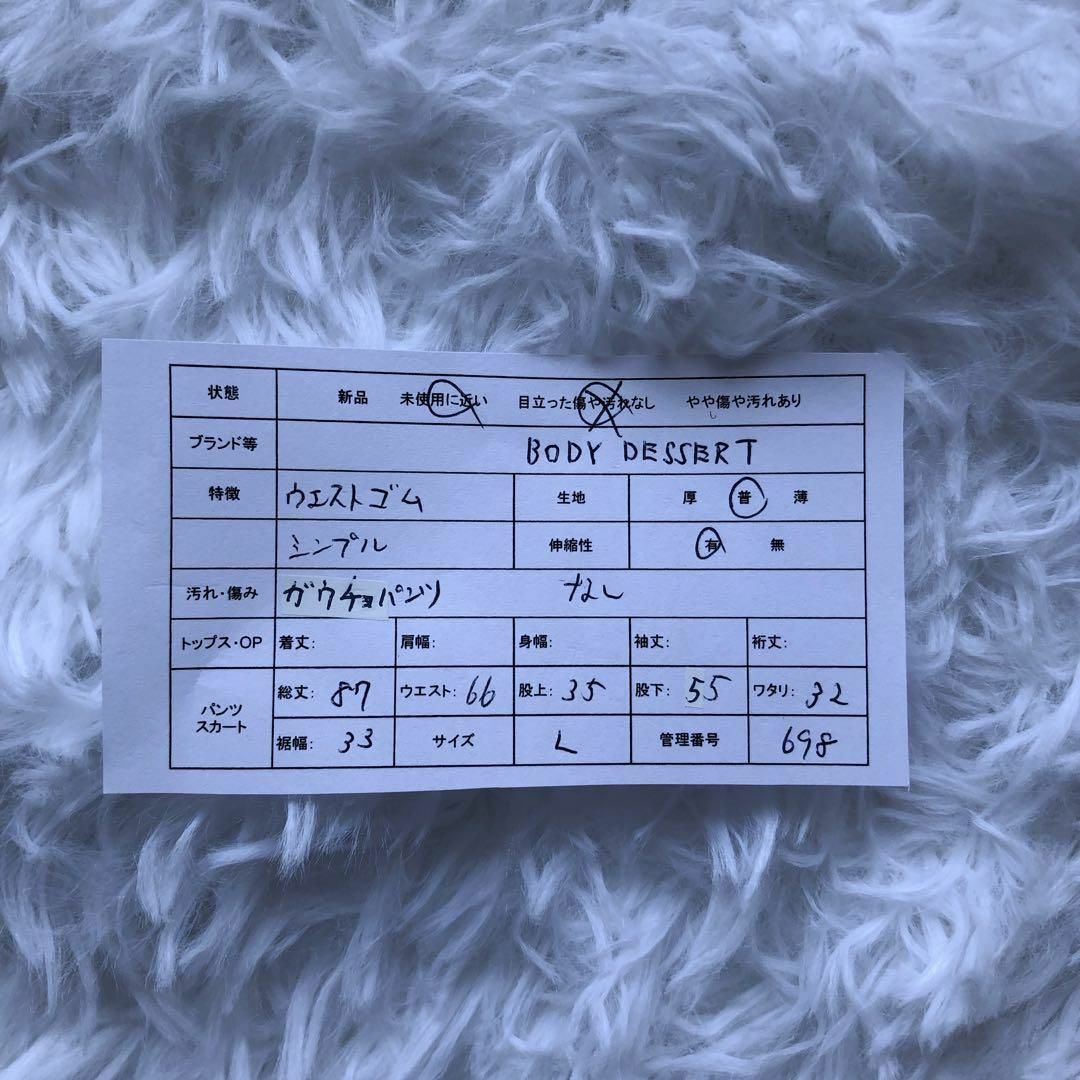 状態 新品 未使用に近い 目立った傷や汚れなし やや傷や汚れあり
ブランド等 BODY DESSERT
特徴 ウエストゴム 生地 厚 普 薄
シンプル 伸縮性 有 無
汚れ・傷み ガウチョパンツ なし
トップス・OP 着丈: 肩幅: 身幅: 袖丈: 裄丈:
パンツ スカート 総丈: 87 ウエスト: 66 股上: 35 股下: 55 ワタリ: 32
裾幅: 33 サイズ L 管理番号 698